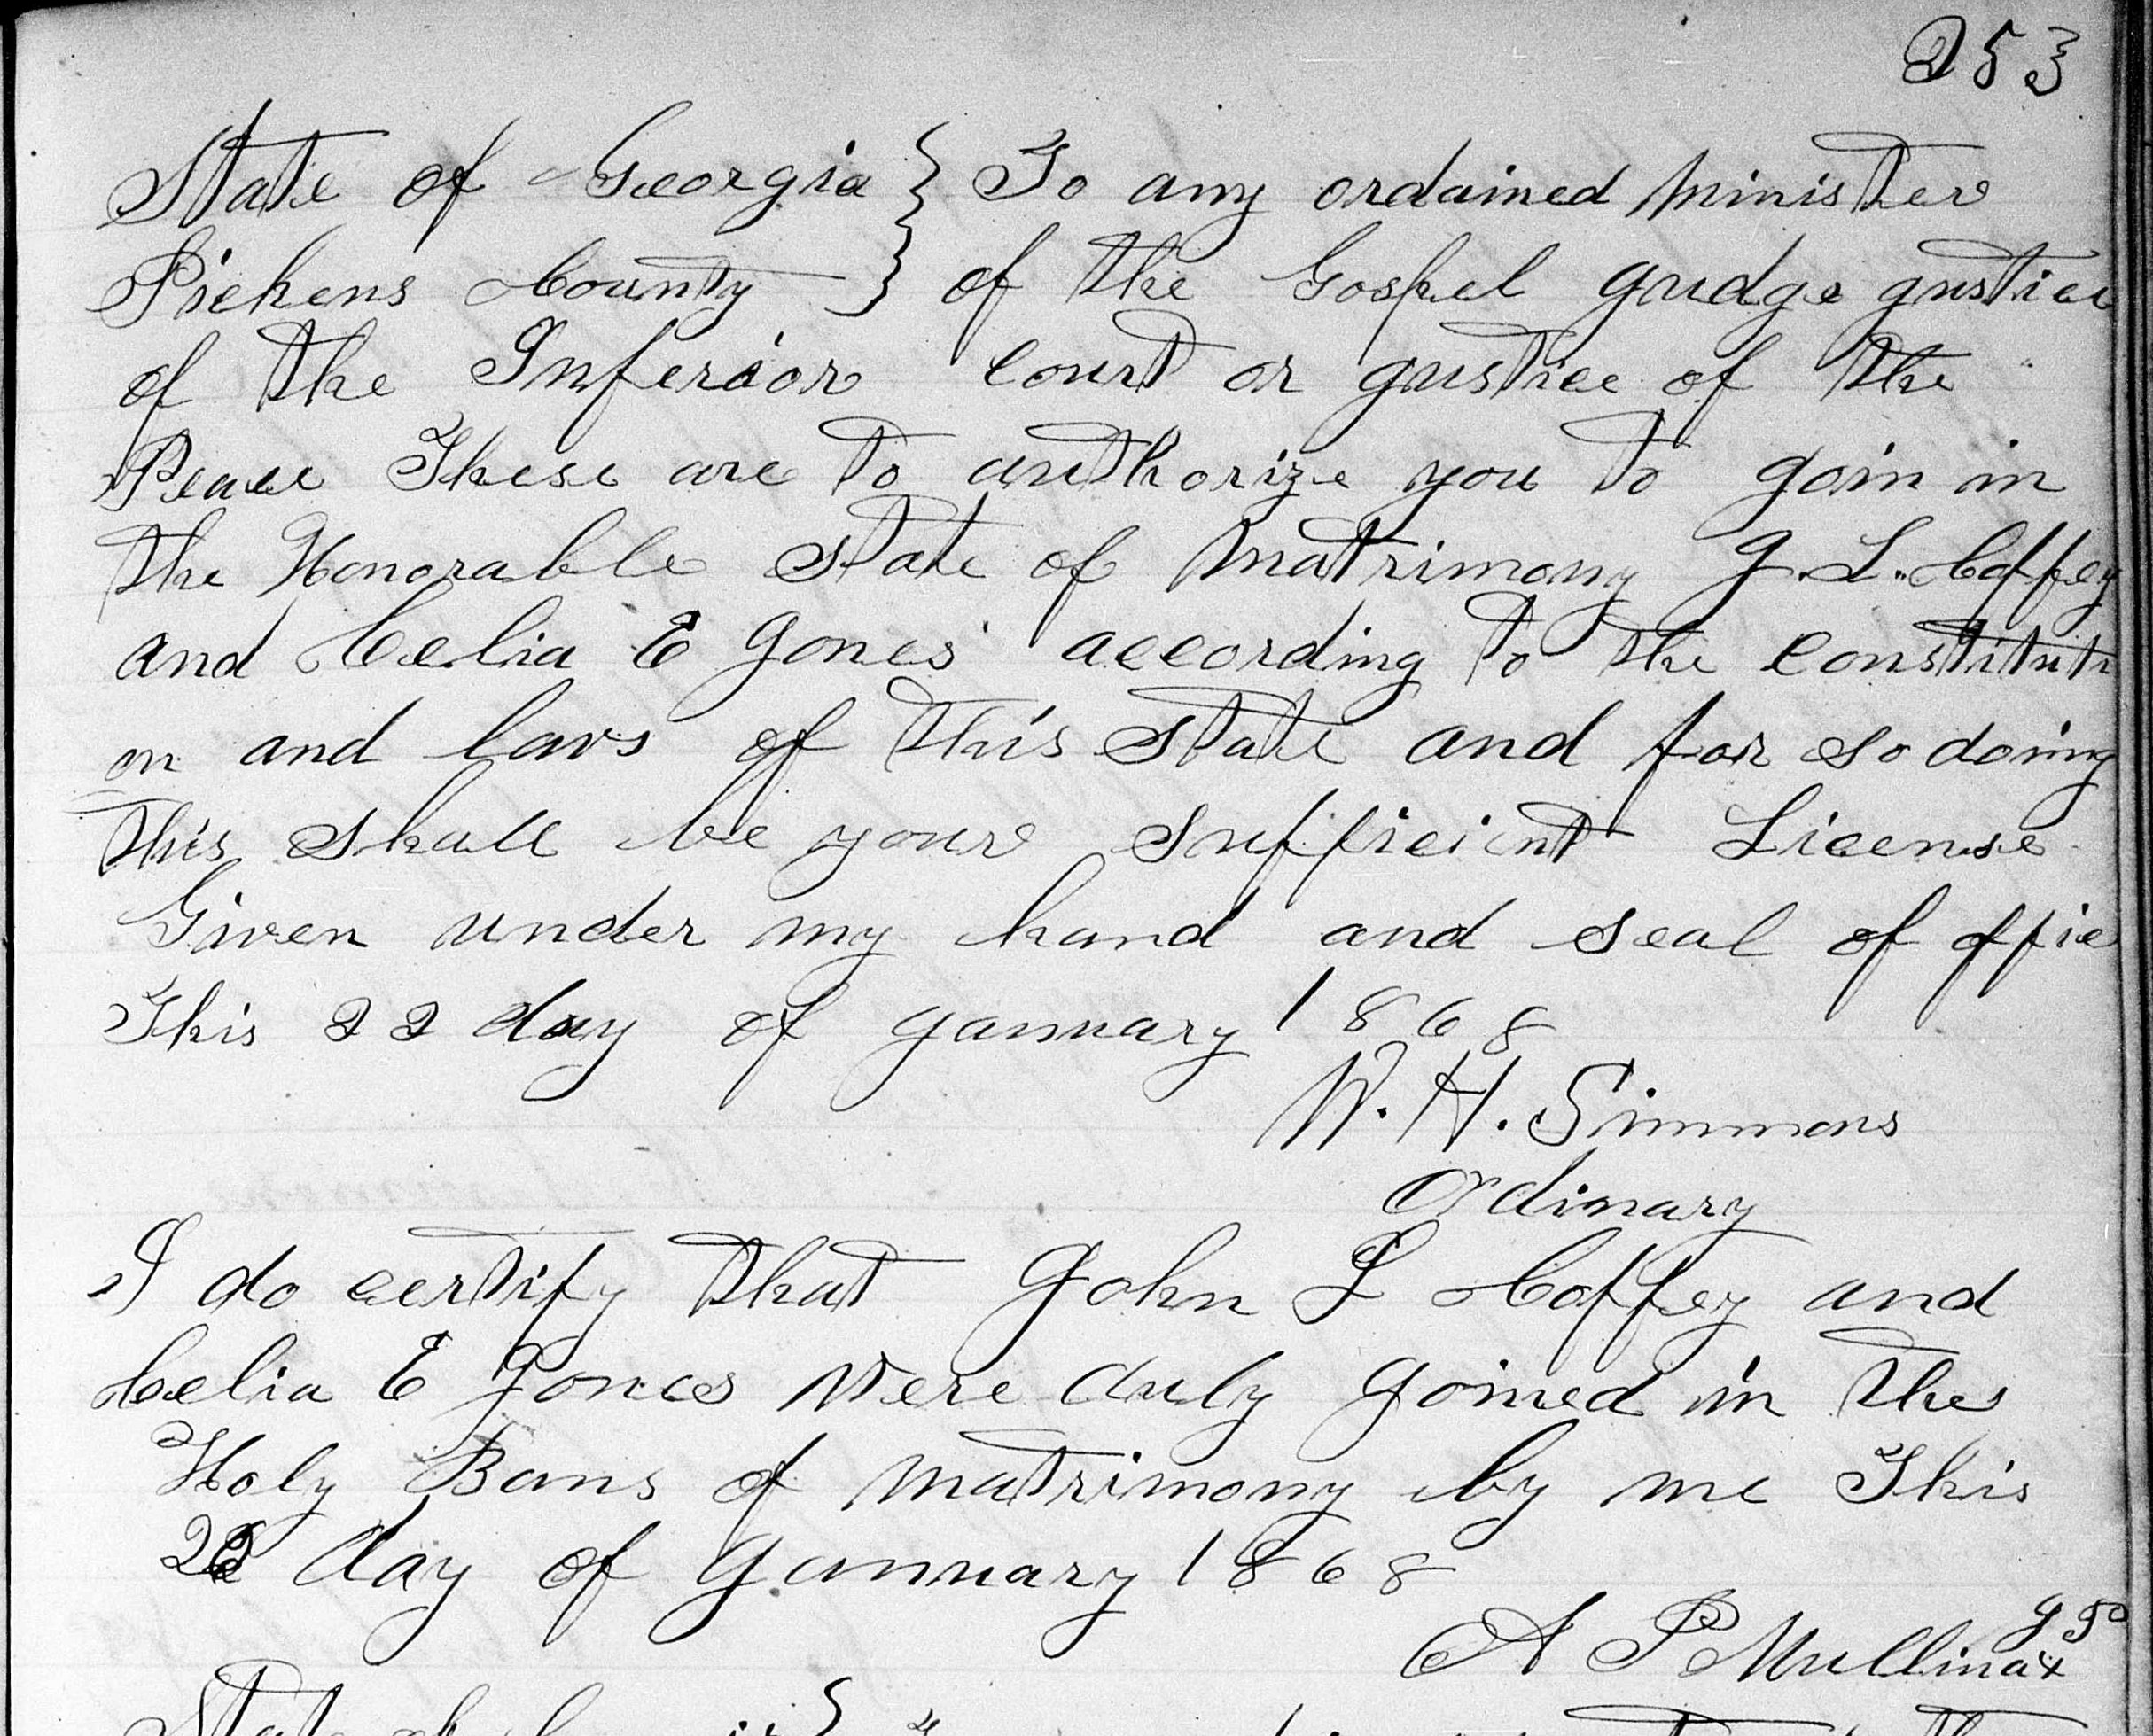 253
State of Georgia } To any ordained Minister
Pickens County } of the Gospel Judge Justice
of the Inferior Court or Justice of the
Peace These are to authorize you to Join in
the Honorable State of Matrimony J. L. Coffey
and Celia E Jones according to the Constituti
on and laws of this State and for so doing
this shall be your sufficient License
Given under my hand and seal of offic
This 22 day of January 1868
W. H. Simmons
Ordinary
I do certify that John L Coffey and
Celia E Jones were duly Joined in the
Holy Bans of Matrimony by me This
22 day of January 1868
J P
A P Mullinax
State of